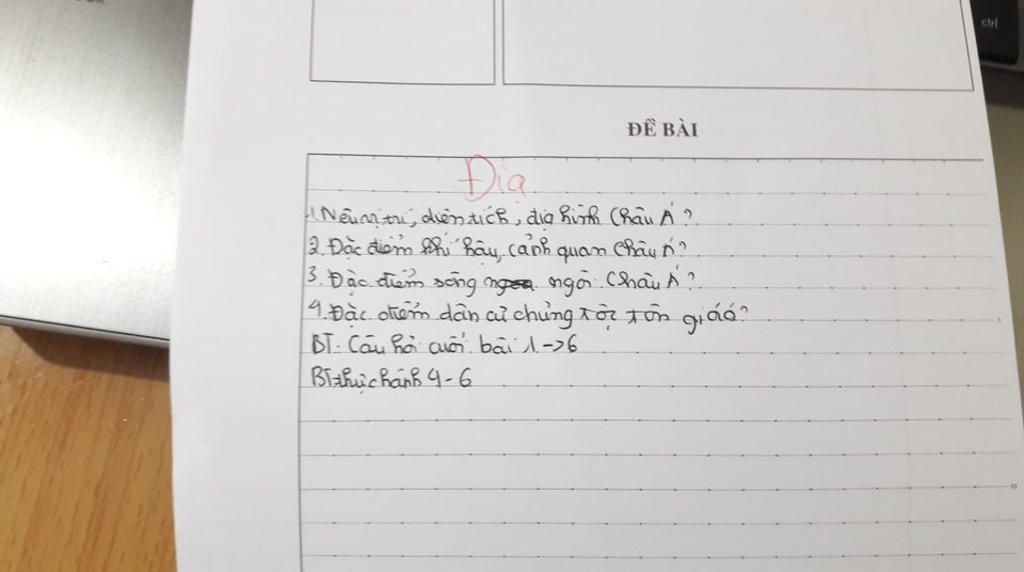 ctrl
ĐỀ BÀI
Địa
1. Nêu vị trí, diện tích, địa hình Châu Á?
2. Đặc điểm khí hậu, cảnh quan Châu Á?
3. Đặc điểm sông ngòi Châu Á?
4. Đặc điểm dân cư chủng tộc tôn giáo?
BT: Câu hỏi cuối bài 1->6
BT thực hành 4-6
10